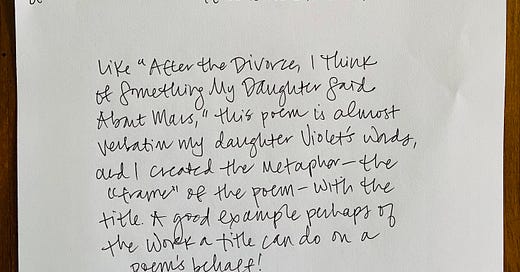 Like "After the Divorce, I Think
of Something My Daughter Said
About Mars," this poem is almost
verbatim my daughter Violet's words,
and I created the metaphor—the
"frame" of the poem—with the
title. A good example perhaps of
the work a title can do on a
poem's behalf!